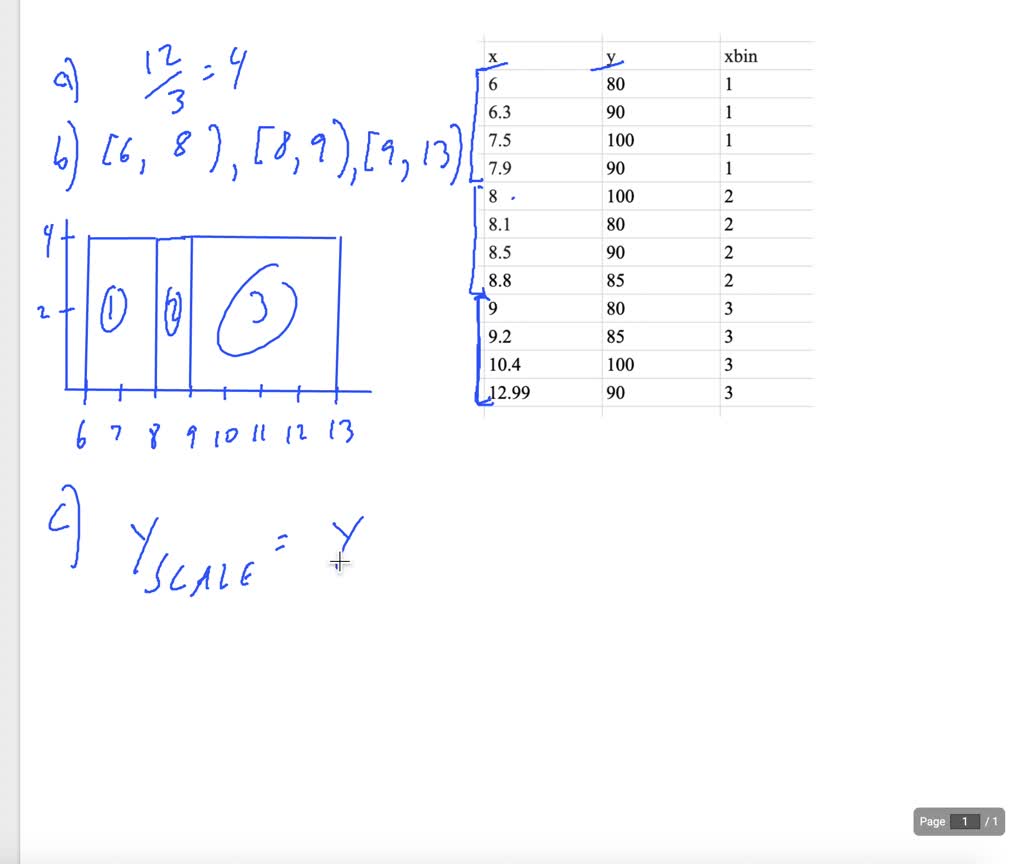 a) 12/3 = 4
b) [6, 8), [8, 9), [9, 13)
4
2
① ② ③
6 7 8 9 10 11 12 13
c) Y SCALE = Y
x y xbin
6 80 1
6.3 90 1
7.5 100 1
7.9 90 1
8 100 2
8.1 80 2
8.5 90 2
8.8 85 2
9 80 3
9.2 85 3
10.4 100 3
12.99 90 3
Page 1 / 1